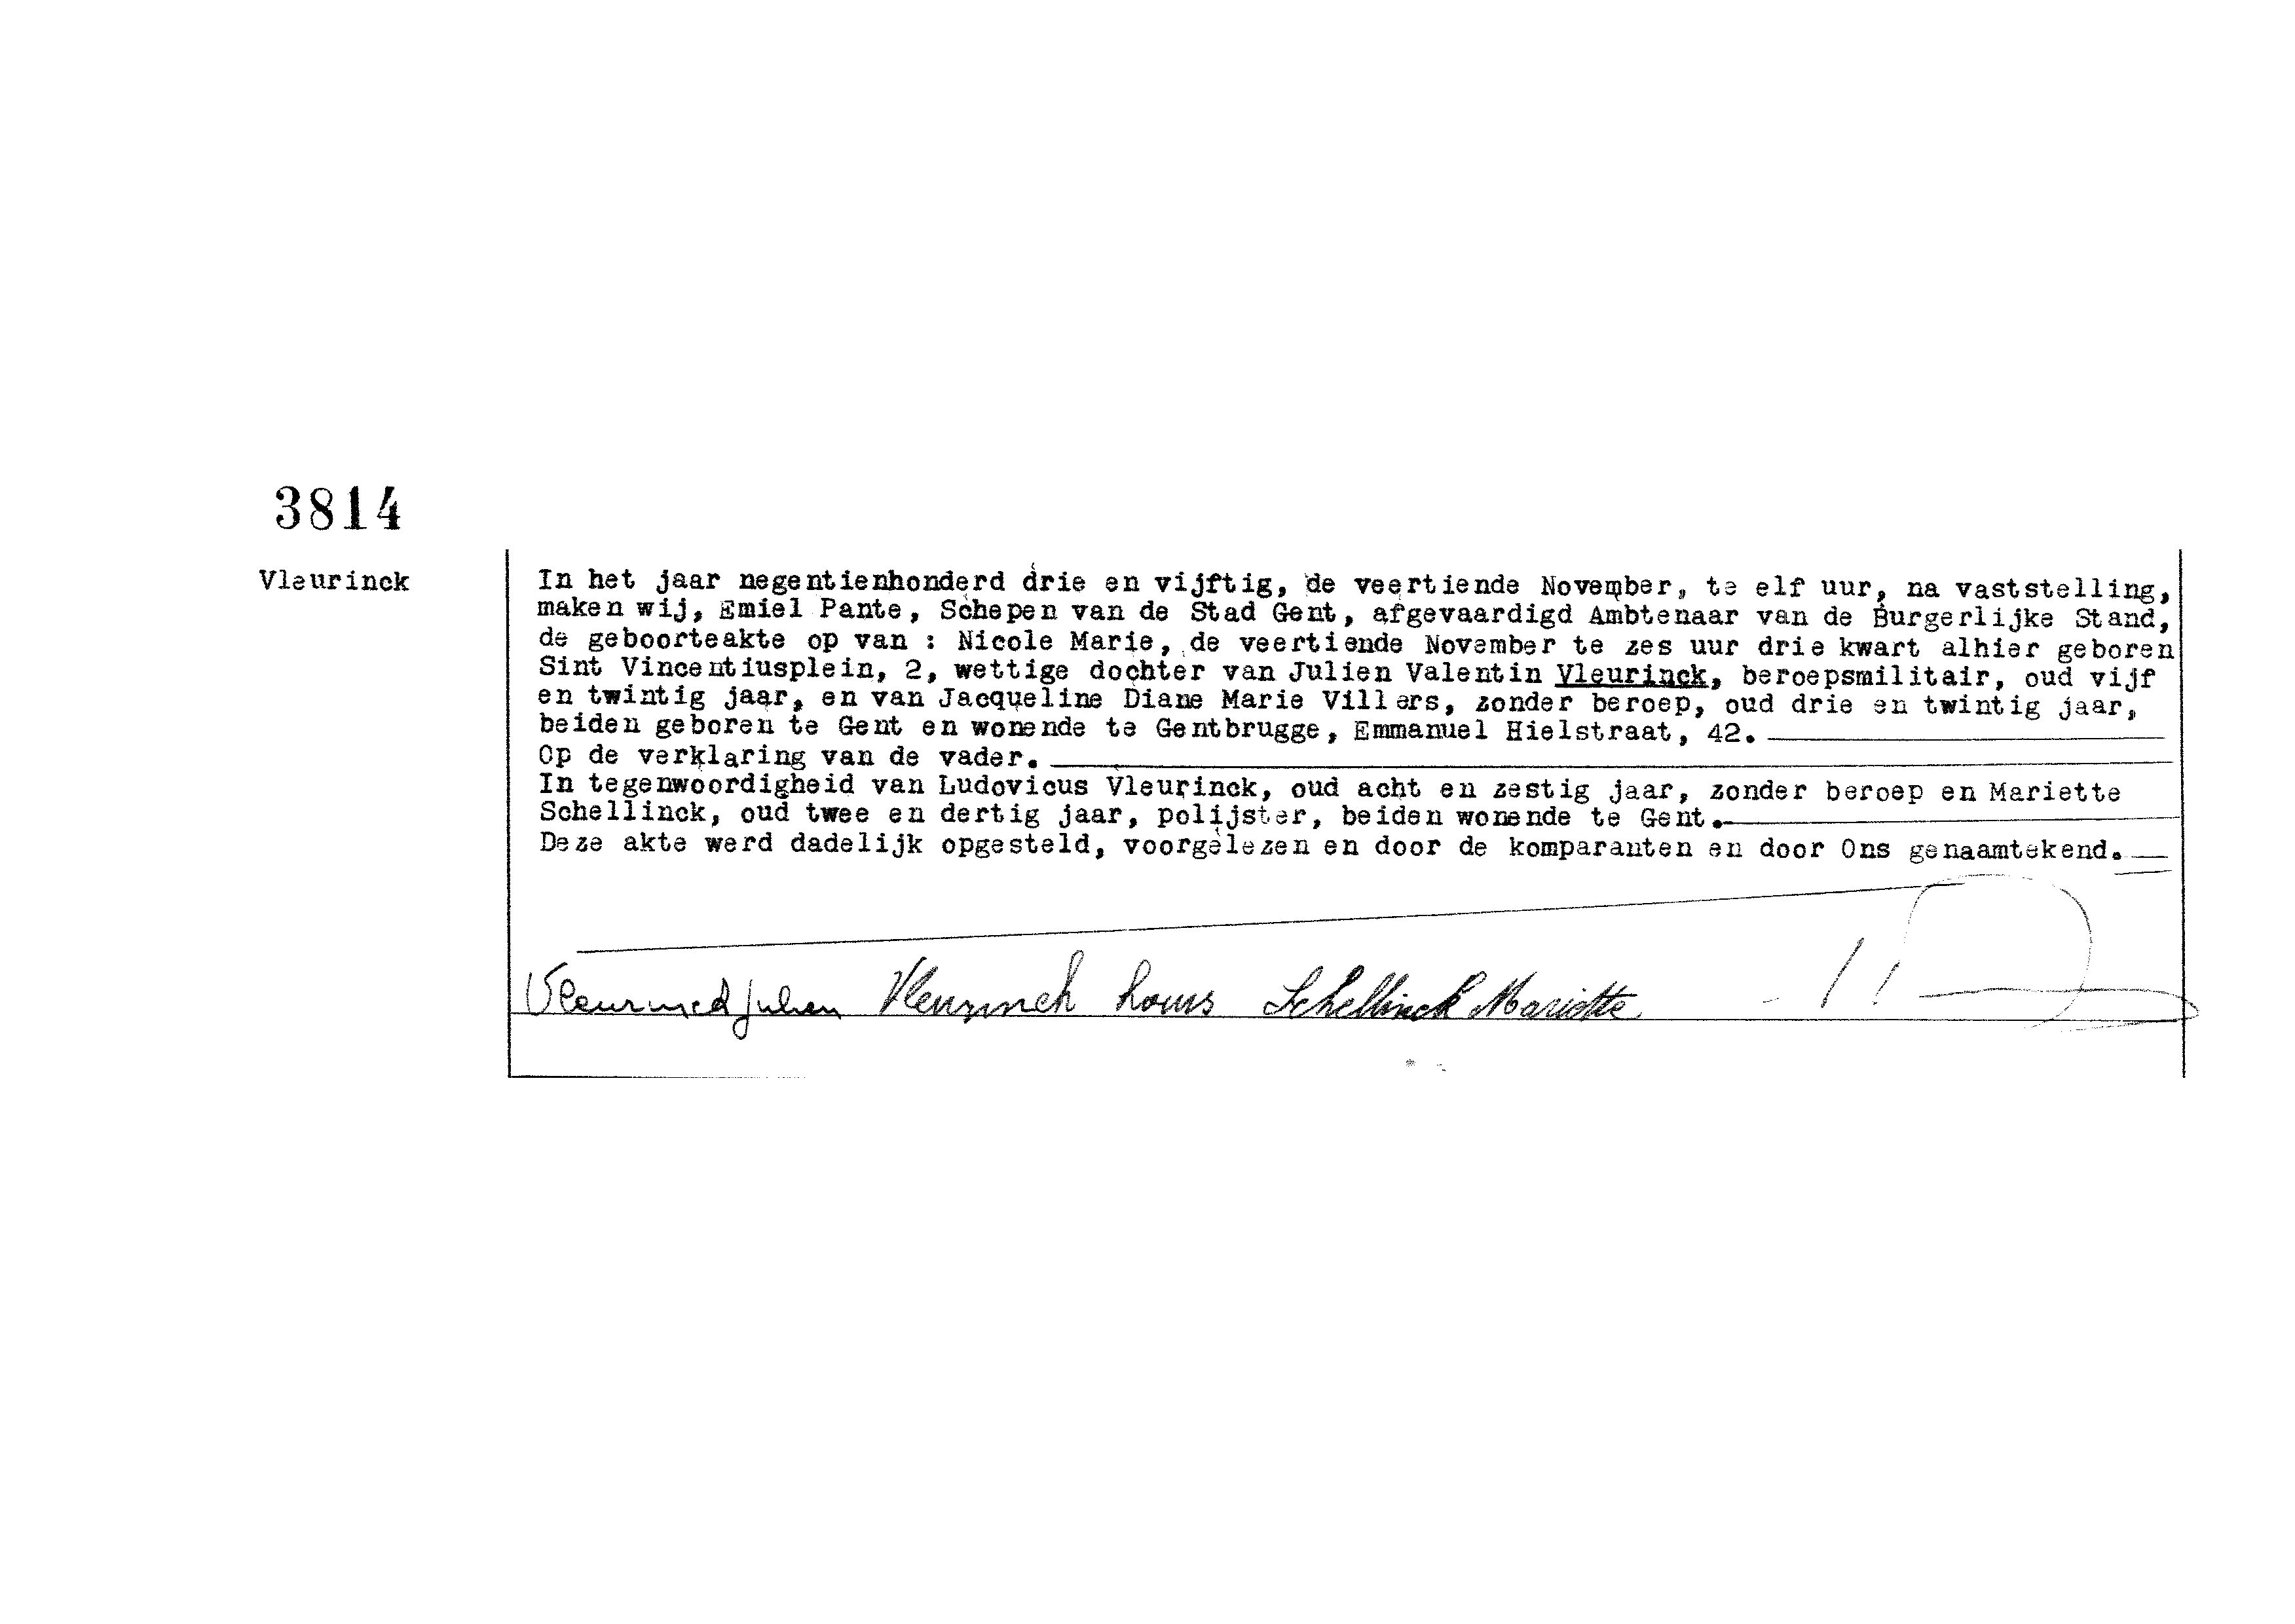 3814
Vleurinck
In het jaar negentienhonderd drie en vijftig, de veertiende November, te elf uur, na vaststelling,
maken wij, Emiel Pante, Schepen van de Stad Gent, afgevaardigd Ambtenaar van de Burgerlijke Stand,
de geboorteakte op van : Nicole Marie, de veertiende November te zes uur drie kwart alhier geboren
Sint Vincentiusplein, 2, wettige dochter van Julien Valentin Vleurinck, beroepsmilitair, oud vijf
en twintig jaar, en van Jacqueline Diane Marie Villers, zonder beroep, oud drie en twintig jaar,
beiden geboren te Gent en wonende te Gentbrugge, Emmanuel Hielstraat, 42.
Op de verklaring van de vader.
In tegenwoordigheid van Ludovicus Vleurinck, oud acht en zestig jaar, zonder beroep en Mariette
Schellinck, oud twee en dertig jaar, polijster, beiden wonende te Gent.
Deze akte werd dadelijk opgesteld, voorgelezen en door de komparanten en door Ons genaamtekend.
Vleurinck Julien Vleurinck Louis Schellinck Mariette